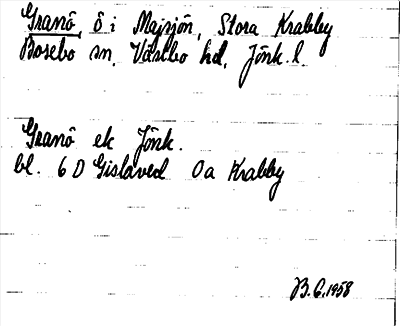 Granö, ö i Majsjön, Stora Krabby
Bosebo sn, Västbo hd, Jönk. l.
Granö ek Jönk.
bl. 6 D Gislaved 0a Krabby
B. G. 1958